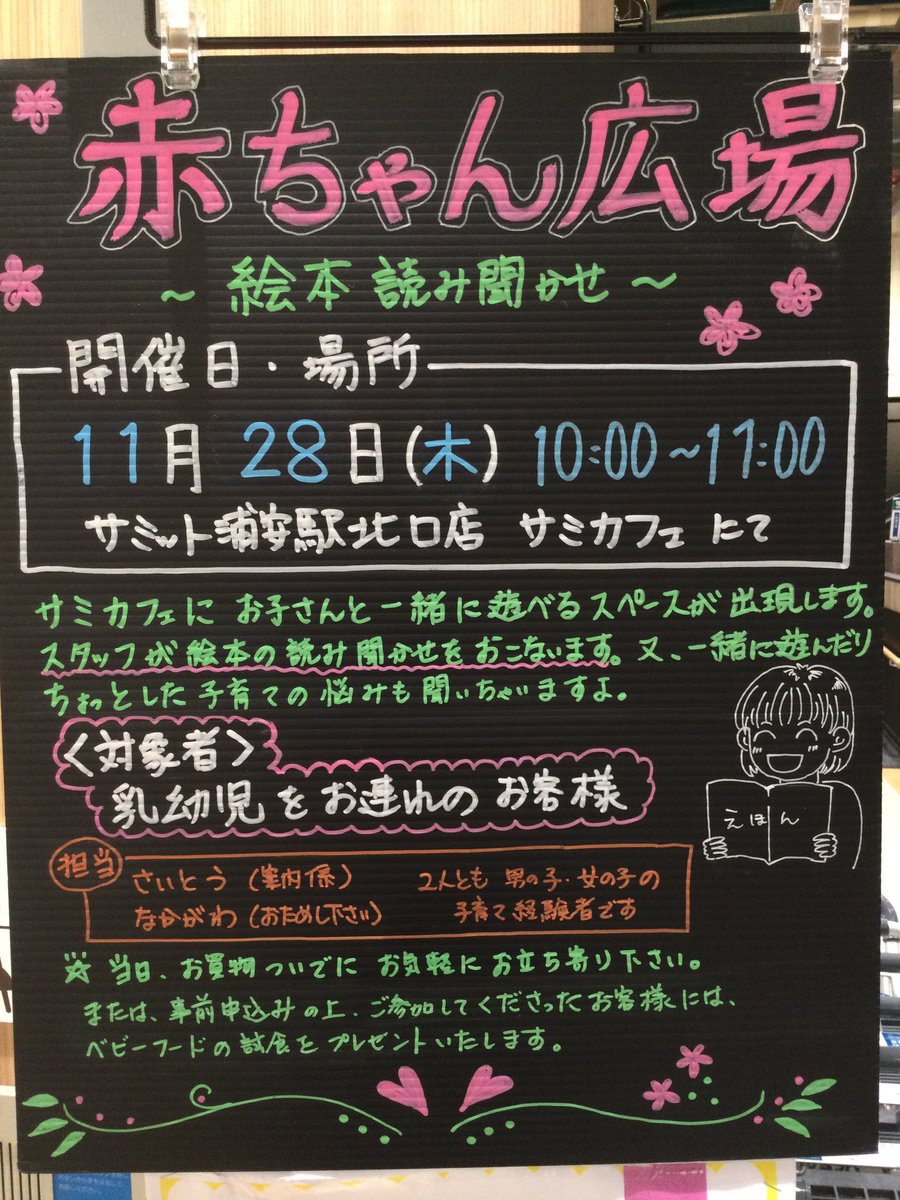 赤ちゃん広場
～ 絵本 読み聞かせ ～
開催日・場所
11月 28日(木) 10:00～11:00
サミット浦安駅北口店 サミカフェ にて
サミカフェに お子さんと一緒に遊べるスペースが出現します。
スタッフが絵本の読み聞かせをおこないます。又、一緒に遊んだり
ちょっとした子育ての悩みも聞いちゃいますよ。
＜対象者＞
乳幼児をお連れのお客様
えほん
担当
さいとう (案内係) 2人とも 男の子・女の子の
なかがわ (おためし下さい) 子育て経験者です
☆ 当日、お買物ついでに お気軽にお立ち寄り下さい。
または、事前申込みの上、ご参加してくださったお客様には、
ベビーフードの試食をプレゼントいたします。